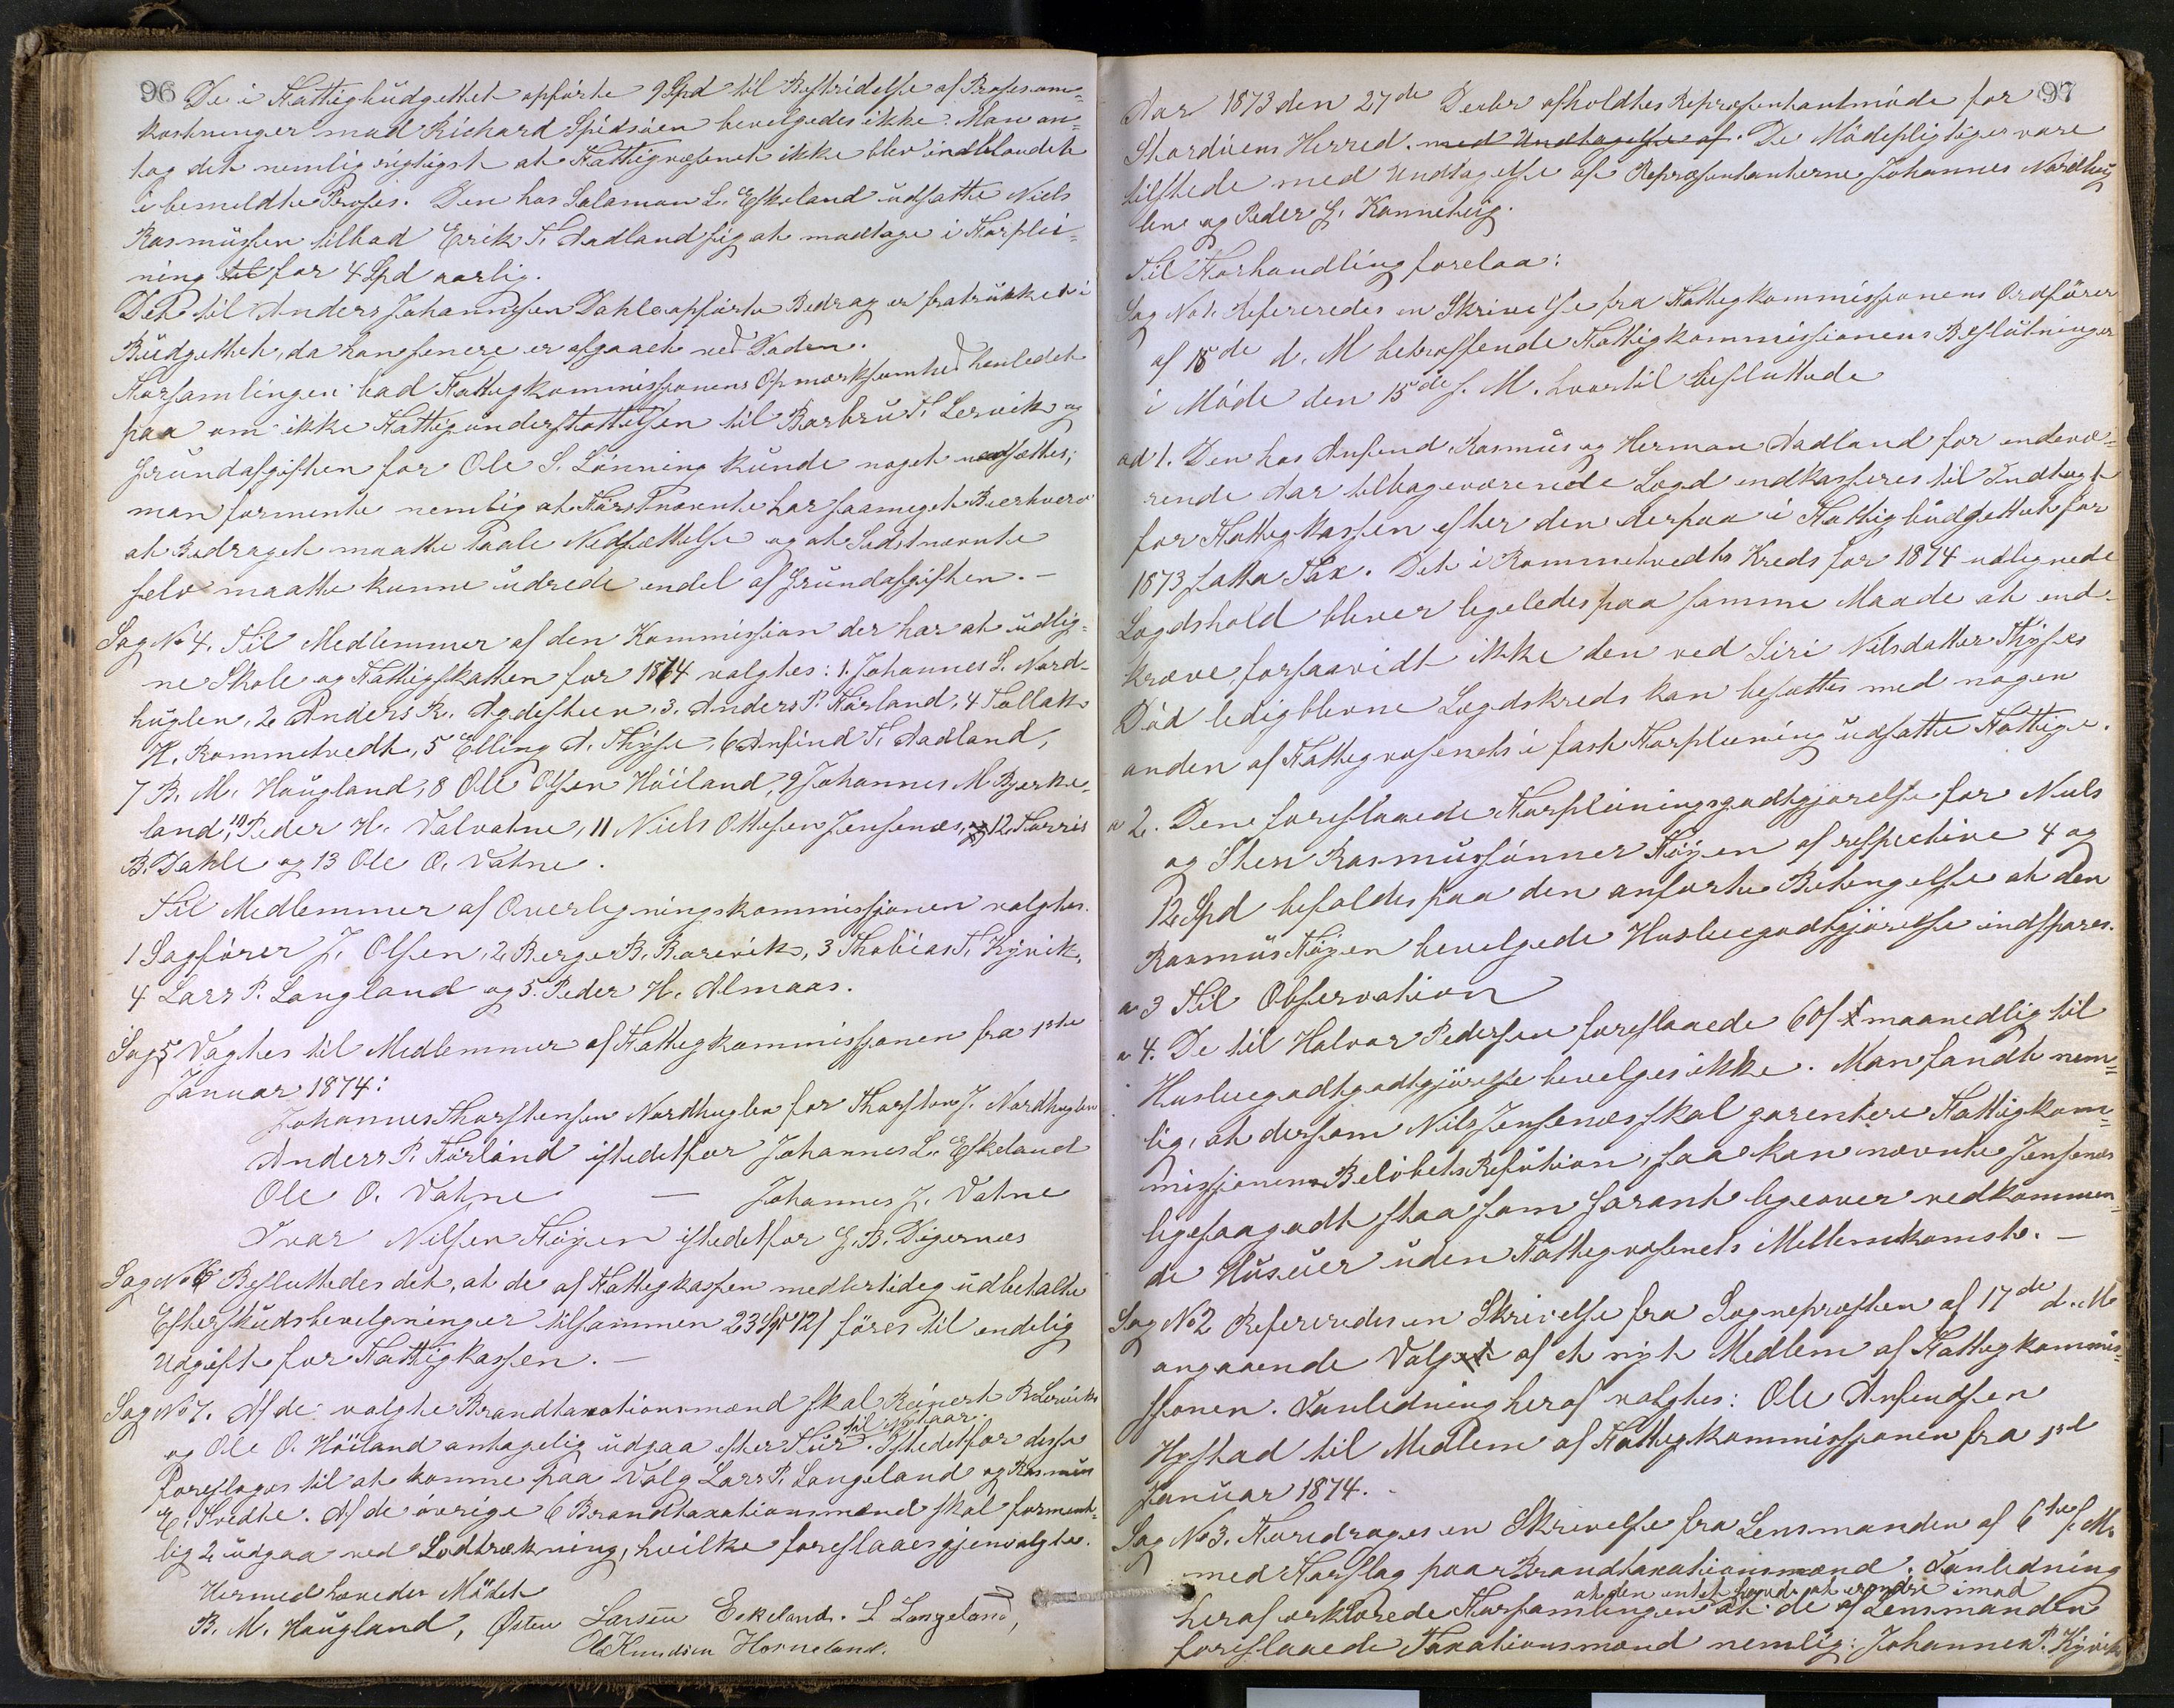 96
De i Fattigbudgettet opførte 9 Spd til Bestridelse af Prosesom-
kostninger mod Richard Spidsøen bevelgedes ikke. Man an-
tog det nemlig rigtigst at Fattigvæsenet ikke blev indblandet
i bemeldte Proses. Den hos Salamon L. Eskeland udsatte Niels
Rasmussen tilbad Erik T. Aadland sig at modtage i Forplei-
ning til for 4 Spd aarlig.
Det til Anders Johannessen Dahle opførte Bedrag er fratrukket i
Budgettet, da han senere er afgaaet ved Døden.
Forsamlingen bad Fattigkommissionens Opmærksomhed henledet
paa om ikke Fattigunderstøttelsen til Barbru T. Lervik og
Grundafgiften for Ole S. Lønning kunde noget nedsættes;
man formente nemlig at Førstnævnte har saameget Bierhverv
at Bedraget maatte taale Nedsættelse og at Sidstnævnte
selv maatte kunne udrede endel af Grundafgiften. –
Sag No 4. Til Medlemmer af den Kommission der har at udlig-
ne Skole og Fattigskatten for 1874 valgtes: 1. Johannes S. Nord-
huglen, 2 Anders R. Agdesteen, 3. Anders P. Førland, 4 Tollak
H. Rommetvedt, 5 Elling A. Thyse, 6 Anfind T. Aadland,
7 B. M. Hougland, 8 Ole Olsen Høiland, 9 Johannes M Bjerke-
land, 10 Peder H. Valvatne, 11 Niels Ottesen Jensenæs, og 12 Torris
B. Dahle og 13 Ole O. Vatne.
Til Medlemmer af Overligningskommissjonen valgtes.
1 Sagfører J. Olsen, 2, Berge B. Borevik, 3 Thobias T. Kyvik,
4 Lars P. Langland og 5. Peder H. Almaas.
Sag 5 Valgtes til Medlemmer af Fattigkommissjonen fra 1ste
Januar 1874:
Johannes Thorstensen Nordhuglen for Thorsten J. Nordhuglen
Anders P. Førland istedetfor Johannes L. Eskeland
Ole O. Vatne — Johannes J. Vatne
Ivar Nilsen Høyen istedetfor G. B. Digernæs
Sag No 6 Besluttedes det, at de af Fattigkassen medlertidig udbetalte
Efterskudsbevelgninger tilsammen 23 Sp 12 s føres til endelig
Udgift for Fattigkassen. –
Sag No 7. Af de valgte Brandtaxationsmænd skal Reinert B Lervik
til Nytaar.
og Ole O. Høiland antagelig udgaa efter Tur. Istedetfor disse
foreslages til at komme paa Valg Lars P. Langeland og Rasmus
E. Tvedte. Af de øvrige 6 Brandtaxationsmænd skal forment-
lig 2 udgaa ved Lodtrækning, hvilke foreslaaes gjenvalgte.
Hermed hævedes Mødet
B. M. Hougland, Østen Larsen Eskeland. L Langeland,
Ole Knudsen Horneland.
97
Aar 1873 den 27de Decbr afholdtes Repræsentantmøde for
Stordøens Herred. med Undtagelse af. De Mødepligtige vare
tilstede med Undtagelse af Repræsentanterne Johannes Nordhug
len og Peder G. Kannelvig.
Til Forhandling forelaa:
Sag No 1. Refereredes en Skrivelse fra Fattigkommissjonens Ordfører
af 18de d. M betræffende Fattigkommissionens Beslutninger
i Møde den 15de s. M. hvortil besluttede
ad 1. Den hos Anfind, Rasmus og Herman Aadland for indevæ-
rende Aar tilbageværende Lægd indkasseres til Indtægt
for Fattigkassen efter den derpaa i Fattigbudgettet for
1873 satta Tax. Det i Rommetvedts Kreds for 1874 udlignede
Lægdshold bliver ligeledes paa samme Maade at ind-
kræve, forsaavidt ikke den ved Siri Nilsdatter Thyses
Død ledigblevne Lægdskreds kan besættes med nogen
anden af Fattigvæsenets i fast Forpleining udsatte Fattige.
a 2. Den foreslaaede Forpleiningsgodtgjørelse for Niels
og Sten Rasmussønner Høyen af respective 4 og
12 Spd befaldes paa den anførte Betingelse at den
Rasmus Høyen bevelgede Husleiegodtgjørelse indspares.
a 3 Til Observation
a 4. De til Halvor Pedersen foreslaaede 60 s maanedlig til
Husleiegodtgodtgjørelse bevelges ikke. Man fandt nem-
lig, at dersom Nils Jensenæs skal garentere Fattigkom-
missjonen Beløbets Refution, saa kan nævnte Jensenæs
ligesaagodt staa som Garant ligeover vedkommen-
de Huseier uden Fattigvæsenets Mellemkomst. –
Sag No 2 Refereredes en Skrivelse fra Sognepræsten af 17de d. M
angaaende Valget af et nyt Medlem af Fattigkommis-
sjonen. I Anledning heraf valgtes: Ole Anfindsen
Hystad til Medlem af Fattigkommissjonen fra 1ste
Januar 1874.
Sag No 3. Foredrages en Skrivelse fra Lensmanden af 6te s. M.
med Forslag paa Brandtaxationsmænd. I Anledning
at den intet havde at erindre imod
heraf erklærede Forsamlingen at de af Lensmanden
foreslaaede Taxationsmænd nemlig: Johannes P. Kyvik